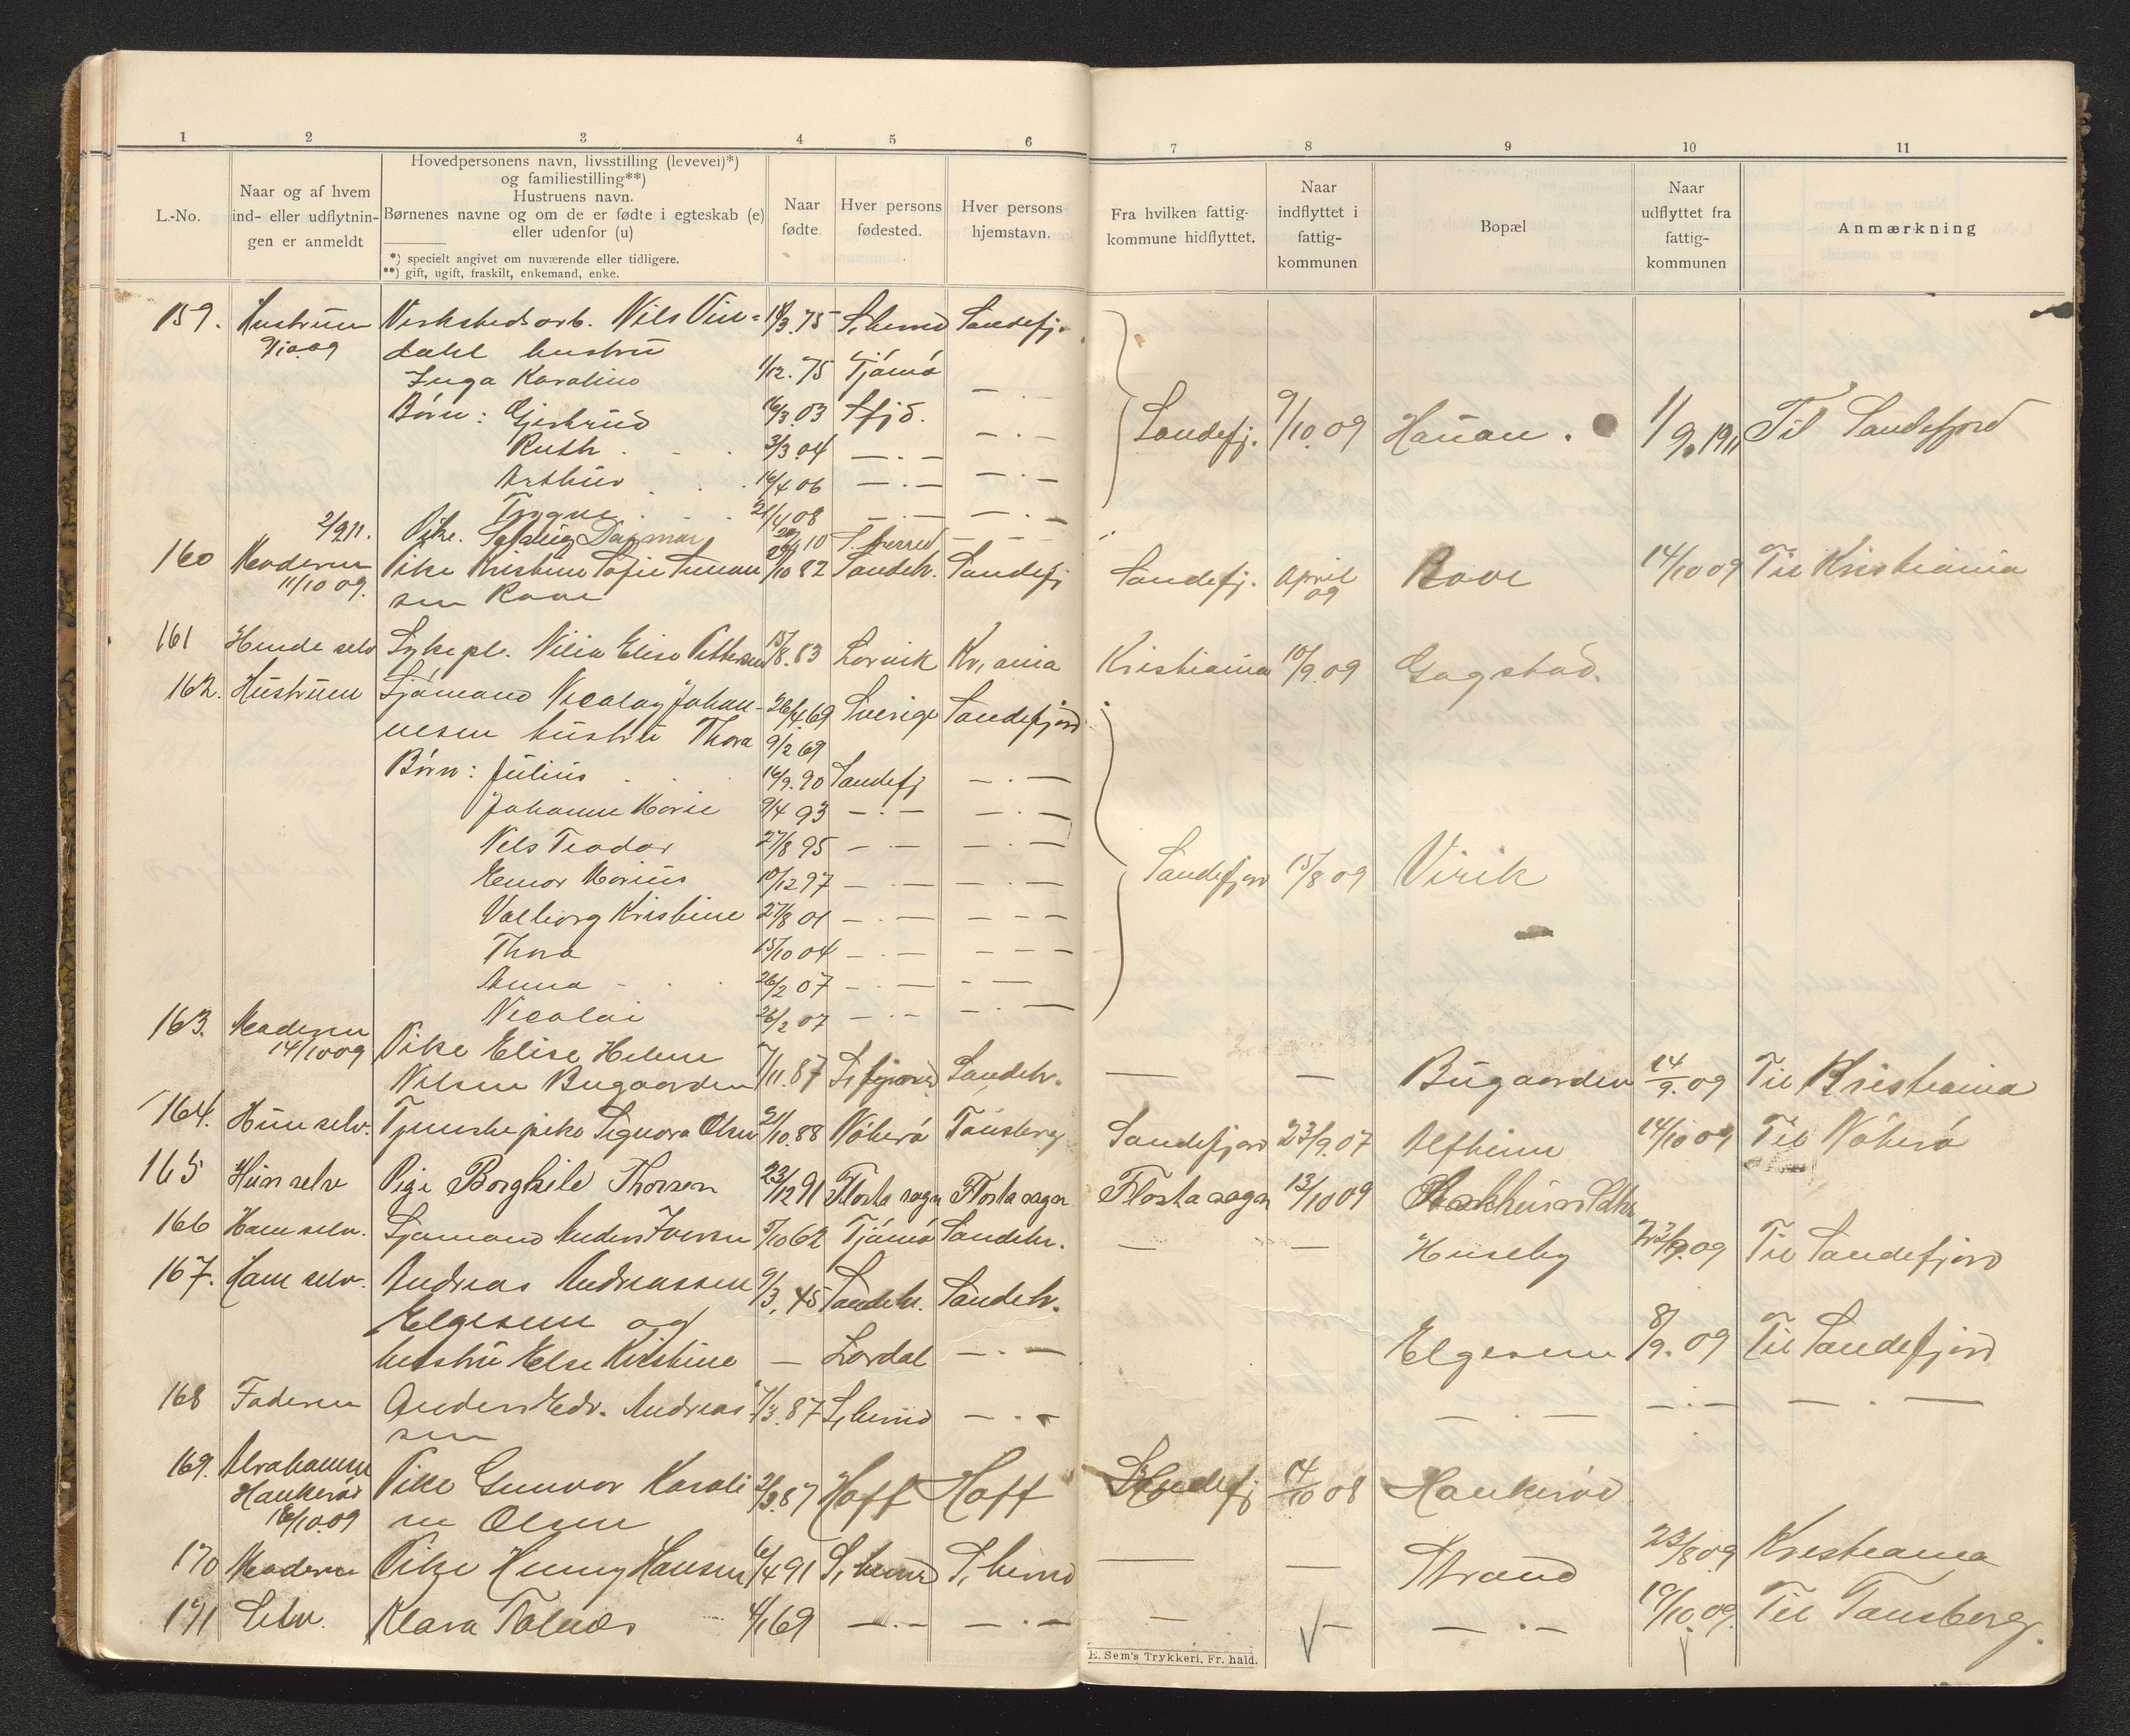 1 2 3 4 5 6 7 8 9 10 11
L.-No.
Naar og af hvem
ind- eller udflytnin-
gen er anmeldt
Hovedpersonens navn, livsstilling (levevei)*)
og familiestilling**)
Hustruens navn.
Børnenes navne og om de er fødte i egteskab (e)
eller udenfor (u)
*) specielt angivet om nuværende eller tidligere.
**) gift, ugift, fraskilt, enkemand, enke.
Naar
fødte.
Hver persons
fødested.
Hver persons
hjemstavn.
Fra hvilken fattig-
kommune hidflyttet.
Naar
indflyttet i
fattig-
kommunen
Bopæl
Naar
udflyttet fra
fattig-
kommunen
Anmærkning
159. Hustruen Verkstedsarb. Nils Vin= 75 Sandefj.
9/10.09 dahl hustru
Inga Karoline 1/12.75 Tjømø
Børn: Gjertrud 16/3.03 Sfjd. — . —
Sandefj. 9/10.09 Hauan. 1/9.1911 Til Sandefjord
Ruth 3/3.04 — . — — . —
Arthur 16/4 06 — . — — . —
Trygve 21/4 08 — . — — . —
2/9 11. Pike. Solveig Dagmar 10 S. herred — —
160 Moderen Pike Kristine Sofie /10 82 Sandeh. Sandefj Sandefj. April 09 Rove 14/10 09 Til Kristiania
11/10 09. sen Rove
161 Hende selv Sykepl. Elise Pettersen 15/8.83 Larvik Kr,ania Kristiania 10/9.09 Gogstad.
162. Hustruen Sjømand Nicolay Johan- 26/4.69 Sverige Sandefjord
nesen hustru Thora 9/2 69
Børn: Julius 16/9.90 Sandefj — . —
Johanne Marie 9/4 93 — . — — . —
Nils Teodor 27/8 95 — . — — . —
Marius 10/12 97 — . — — . — Sandefjord 15/8 09 Virik
Valborg Kristine 27/8 01 — . — — — —
Thora 15/10 04 — . — — — —
Anna 26/2 07 — . — — . —
Nicolai 26/2 07 — . — — . —
163. Moderen Pike Elise Helene
14/10 09 Nilsen Bugaarden 7/11.87 S,fjord Sandeh. — — Bugaarden 14/9.09 Til Kristiania
164. Hun selv. Tjenestepike Signora Olsen 21/10.88 Nøterø Tønsberg Sandefjord 23/9.07 Alfheim 14/10 09 Til Nøterø
165 Hun selv Pige Borghild Thorsen 23/12 91 Flosta sogn Flosta sogn Flosta sogn 13/10 09
166 Ham selv. Sjømand Anders Iversen 5/10 62 Tjømø Sandeh. — — Huseby 09 Til Sandefjord
167. Ham selv. Andreas Andreassen 9/3.45 Sandeh. Sandeh.
Elgesem og
hustru Else Kristine — Lardal — . — Elgesem 8/9.09 Til Sandefjord
168 Faderen Anders Edv. Andreas- 7/3.87 S,herred — . — — . — — . — — . —
sen
169. Abrahamsen
Haukerød
16/10.09
Pike Gunvor Karoli 2/3 87 Hoff Hoff Sandefj 14/10 08 Haukerød
ne Olsen
170 Moderen Pike Henny Hansen 6/4 91 S,herred S,herred — — Strand 23/8 09 Kristiania
171 Selv. Klara Tolnæs 4/1 69 — . — — . — — — — . — 19/10.09. Til Tønsberg.
E. Sem's Trykkeri, Fr. hald.